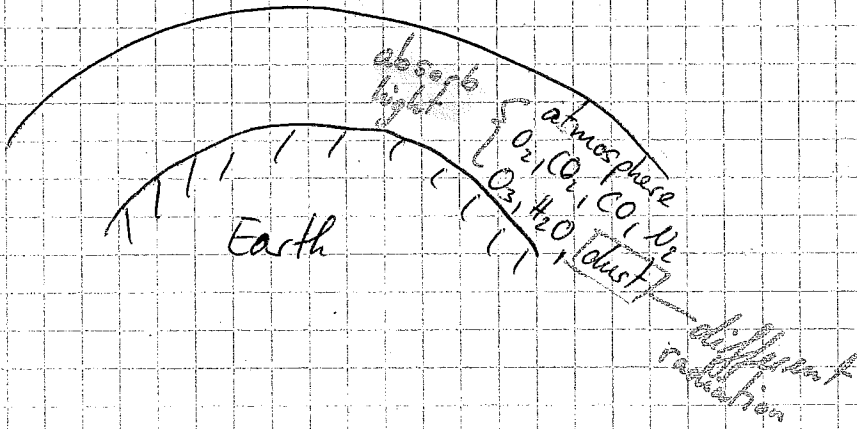 absorb
light
atmosphere
O₂, CO₂, CO, N₂
O₃, H₂O, dust
Earth
different
radiation